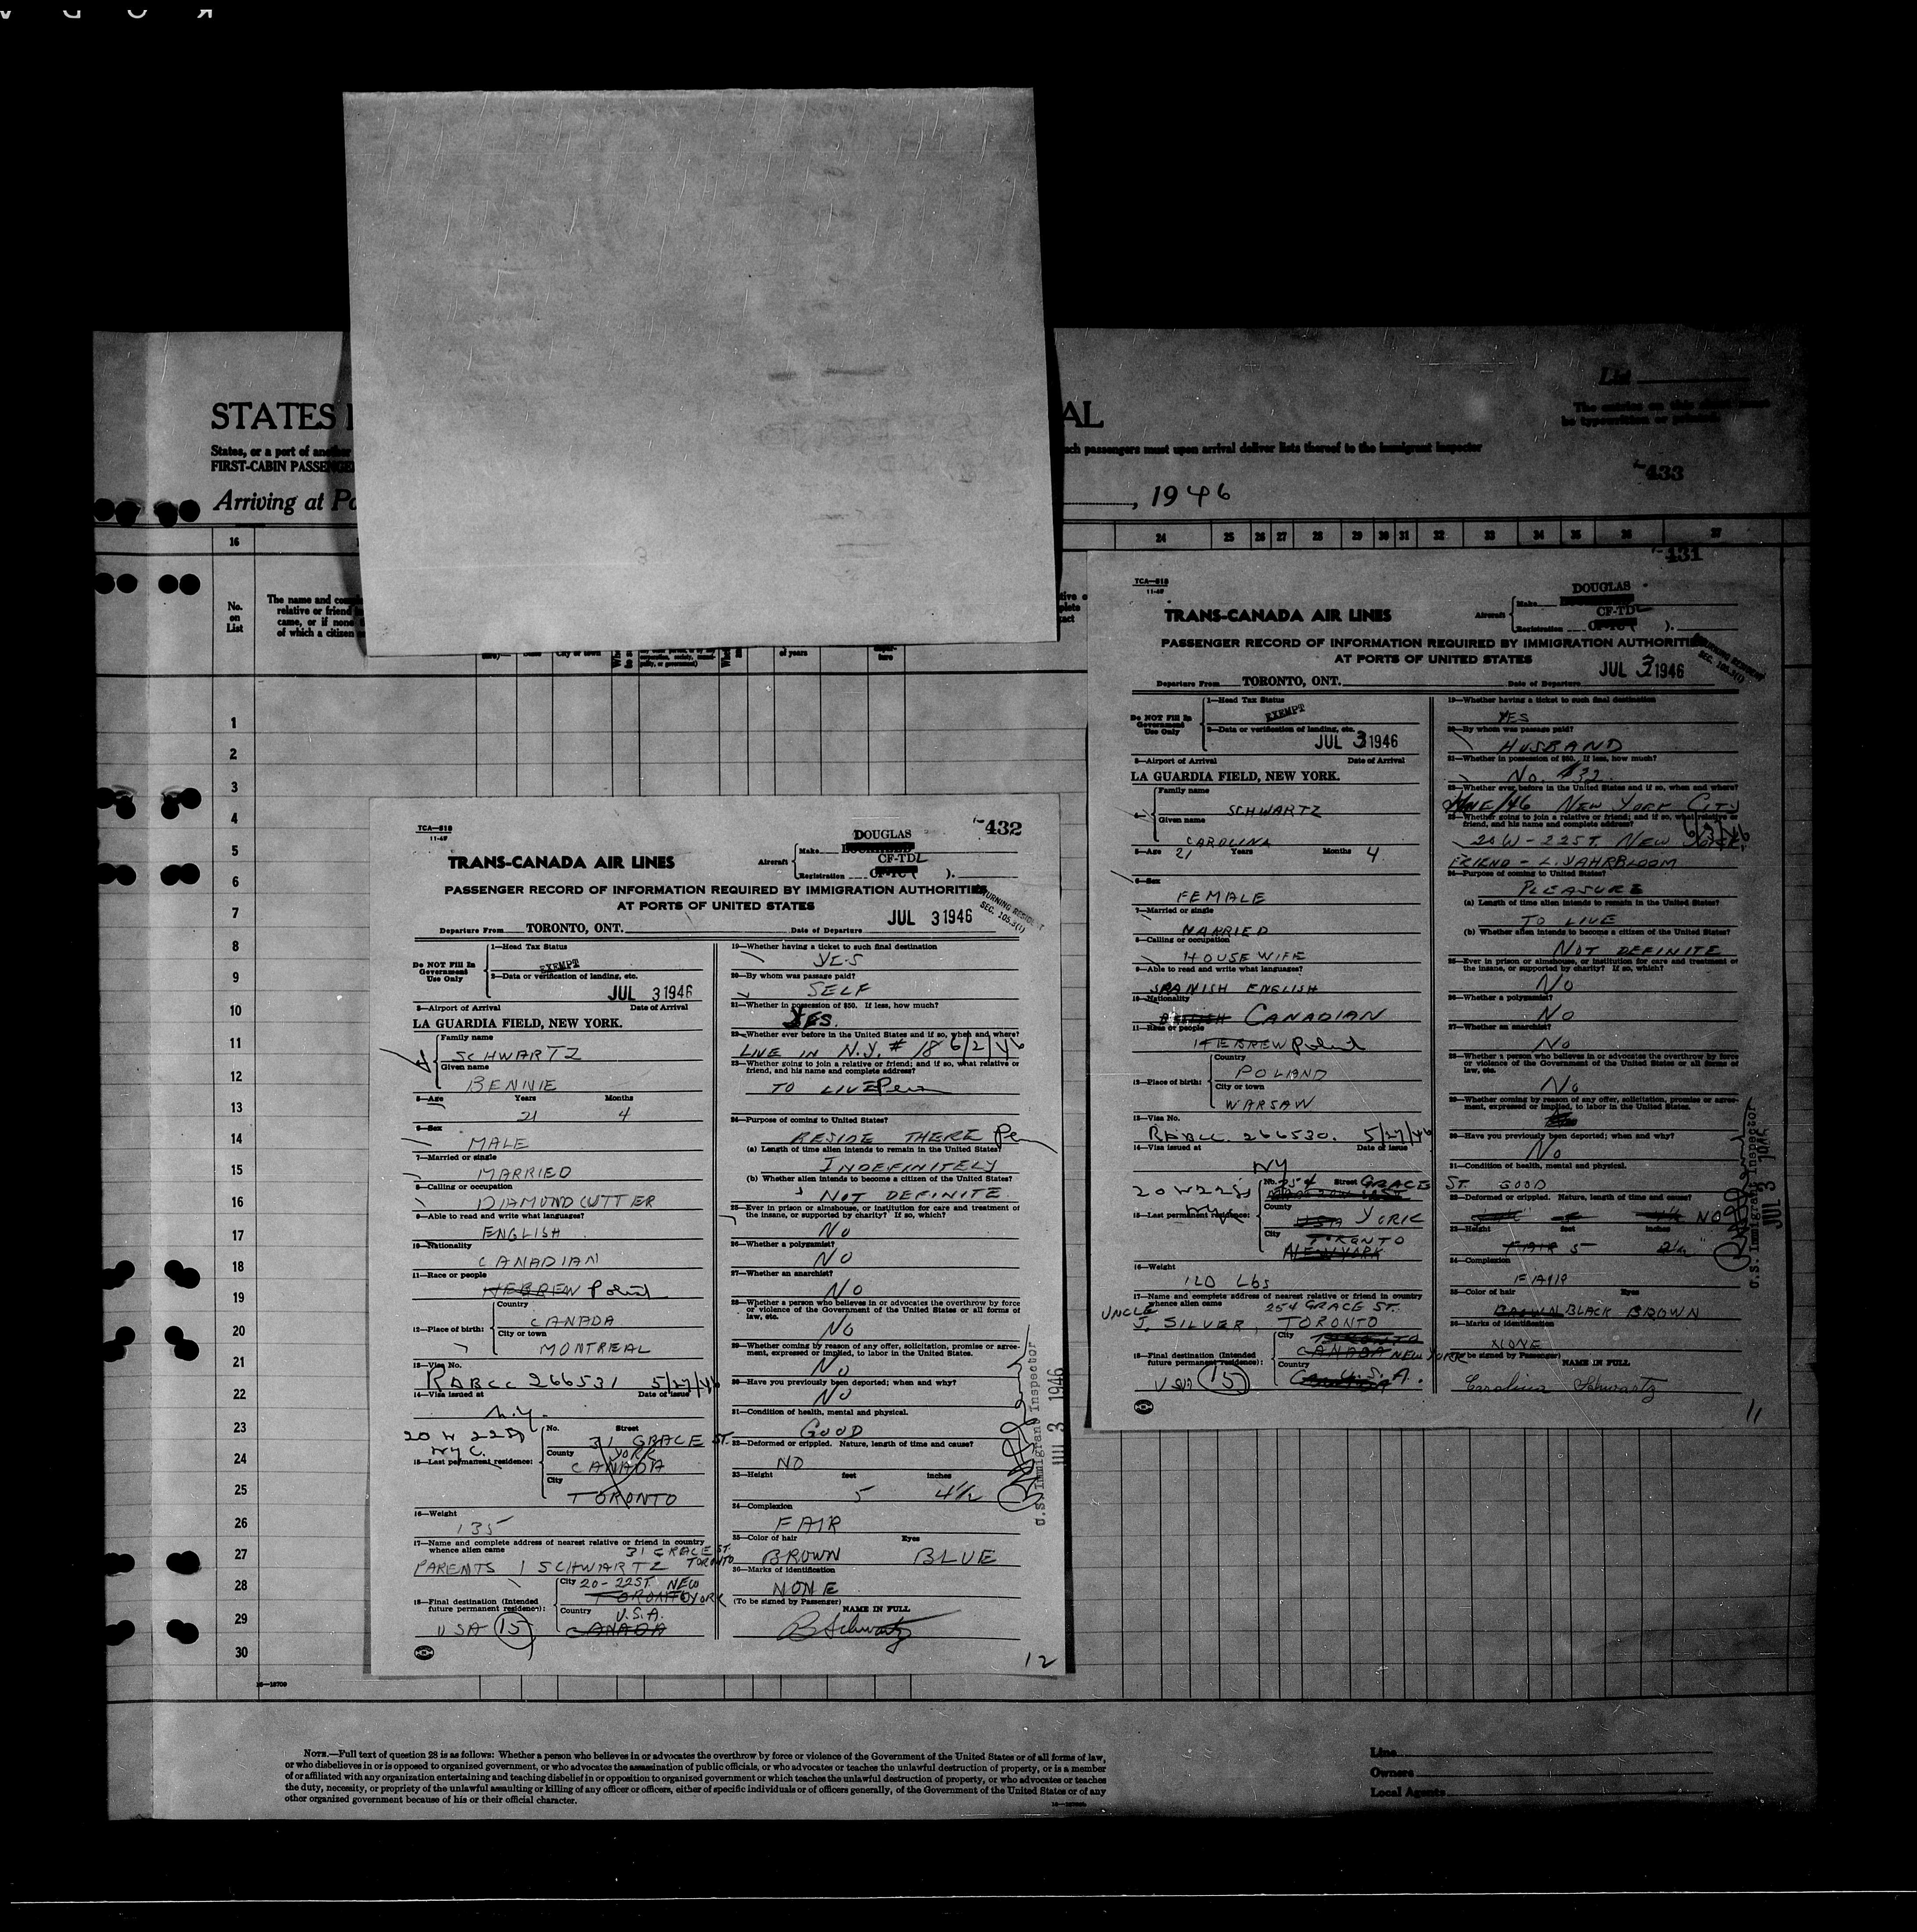 STATES
AL
List
The entries on this sheet must
be typewritten or printed.
States, or a part of another
ach passengers must upon arrival deliver lists thereof to the immigrant inspector
FIRST-CABIN PASSENGE
433
Arriving at Po
, 1946
16
24 25 26 27 28 29 30 31 32 33 34 35 36 37
No.
on
List
The name and comp
relative or friend
came, or if none
of which a citizen
City or town
of years
1
2
3
4
5
6
7
8
9
10
11
12
13
14
15
16
17
18
19
20
21
22
23
24
25
26
27
28
29
30
432
TCA—818
11-45
TRANS-CANADA AIR LINES
Aircraft
Make
DOUGLAS
Registration
CF-TDL
).
PASSENGER RECORD OF INFORMATION REQUIRED BY IMMIGRATION AUTHORITIES
AT PORTS OF UNITED STATES
JUL 3 1946
SEC. 105.3(1)
Departure From TORONTO, ONT.
Date of Departure
Do NOT Fill In
Government
Use Only
1—Head Tax Status
EXEMPT
2—Data or verification of landing, etc.
JUL 3 1946
3—Airport of Arrival Date of Arrival
LA GUARDIA FIELD, NEW YORK.
Family name
SCHWARTZ
Given name
BENNIE
5—Age Years Months
21 4
6—Sex
MALE
7—Married or single
MARRIED
8—Calling or occupation
DIAMOND CUTTER
9—Able to read and write what languages?
ENGLISH
10—Nationality
CANADIAN
11—Race or people
HEBREW Polish
12—Place of birth:
Country
CANADA
City or town
MONTREAL
13—Visa No.
RABCC 266531 5/27/46
14—Visa issued at Date of issue
N.Y.
20 W 22 St
NYC.
15—Last permanent residence:
No. Street
31 GRACE ST.
County
YORK
CANADA
City
TORONTO
16—Weight
135
17—Name and complete address of nearest relative or friend in country
whence alien came
31 GRACE ST.
PARENTS I SCHWARTZ TORONTO
18—Final destination (Intended
future permanent residence):
City 20-22ST. NEW
TORONTO YORK
Country
U.S.A.
CANADA
USA 15
19—Whether having a ticket to such final destination
YES
20—By whom was passage paid?
SELF
21—Whether in possession of $50. If less, how much?
YES.
22—Whether ever before in the United States and if so, when and where?
LIVE IN N.Y. # 18 6/2/46
23—Whether going to join a relative or friend; and if so, what relative or
friend, and his name and complete address?
TO LIVE Perm
24—Purpose of coming to United States?
RESIDE THERE Per
(a) Length of time alien intends to remain in the United States?
INDEFINITELY
(b) Whether alien intends to become a citizen of the United States?
NOT DEFINITE
25—Ever in prison or almshouse, or institution for care and treatment of
the insane, or supported by charity? If so, which?
NO
26—Whether a polygamist?
NO
27—Whether an anarchist?
NO
28—Whether a person who believes in or advocates the overthrow by force
or violence of the Government of the United States or all forms of
law, etc.
NO
29—Whether coming by reason of any offer, solicitation, promise or agree-
ment, expressed or implied, to labor in the United States.
NO
30—Have you previously been deported; when and why?
NO
31—Condition of health, mental and physical.
GOOD
32—Deformed or crippled. Nature, length of time and cause?
NO
33—Height feet inches
5 4½
34—Complexion
FAIR
35—Color of hair Eyes
BROWN BLUE
36—Marks of identification
NONE
(To be signed by Passenger) NAME IN FULL
B Schwartz
U.S. Immigrant Inspector
JUL 3 1946
12
431
TCA—818
11-45
TRANS-CANADA AIR LINES
Aircraft
Make
DOUGLAS
Registration
CF-TDL
).
PASSENGER RECORD OF INFORMATION REQUIRED BY IMMIGRATION AUTHORITIES
AT PORTS OF UNITED STATES
JUL 3 1946
SEC. 105.3(1)
Departure From TORONTO, ONT.
Date of Departure
Do NOT Fill In
Government
Use Only
1—Head Tax Status
EXEMPT
2—Data or verification of landing, etc.
JUL 3 1946
3—Airport of Arrival Date of Arrival
LA GUARDIA FIELD, NEW YORK.
Family name
SCHWARTZ
Given name
CAROLINA
5—Age 21 Years Months 4
6—Sex
FEMALE
7—Married or single
MARRIED
8—Calling or occupation
HOUSE WIFE
9—Able to read and write what languages?
SPANISH ENGLISH
10—Nationality
CANADIAN
11—Race or people
HEBREW Polish
12—Place of birth:
Country
POLAND
City or town
WARSAW
13—Visa No.
RABCC. 266530. 5/27/46
14—Visa issued at Date of issue
NY
20 W 22 St
NYC
15—Last permanent residence:
No. 254 Street GRACE ST.
County
USA YORK
City
TORONTO
NEW YORK
16—Weight
120 Lbs
17—Name and complete address of nearest relative or friend in country
whence alien came
254 GRACE ST.
UNCLE
J. SILVER, TORONTO
18—Final destination (Intended
future permanent residence):
City TORONTO
CANADA NEW YORK
Country
U.S.A.
USA 15
19—Whether having a ticket to such final destination
YES
20—By whom was passage paid?
HUSBAND
21—Whether in possession of $50. If less, how much?
NO. $32.
22—Whether ever before in the United States and if so, when and where?
JUNE/46 NEW YORK CITY
23—Whether going to join a relative or friend; and if so, what relative or
friend, and his name and complete address?
6/2/46
20 W-22ST. NEW YORK.
FRIEND - L. YAHRBLOOM
24—Purpose of coming to United States?
PLEASURE
(a) Length of time alien intends to remain in the United States?
TO LIVE
(b) Whether alien intends to become a citizen of the United States?
NOT DEFINITE
25—Ever in prison or almshouse, or institution for care and treatment of
the insane, or supported by charity? If so, which?
NO
26—Whether a polygamist?
NO
27—Whether an anarchist?
NO
28—Whether a person who believes in or advocates the overthrow by force
or violence of the Government of the United States or all forms of
law, etc.
NO
29—Whether coming by reason of any offer, solicitation, promise or agree-
ment, expressed or implied, to labor in the United States.
30—Have you previously been deported; when and why?
NO
31—Condition of health, mental and physical.
GOOD
32—Deformed or crippled. Nature, length of time and cause?
NO
33—Height feet inches
FAIR 5 2½
34—Complexion
FAIR
35—Color of hair Eyes
BROWN BLACK BROWN
36—Marks of identification
NONE
(To be signed by Passenger) NAME IN FULL
Carolina Schwartz
U.S. Immigrant Inspector
JUL 3 1946
11
16—18700
NOTE.—Full text of question 28 is as follows: Whether a person who believes in or advocates the overthrow by force or violence of the Government of the United States or of all forms of law,
or who disbelieves in or is opposed to organized government, or who advocates the assassination of public officials, or who advocates or teaches the unlawful destruction of property, or is a member
of or affiliated with any organization entertaining and teaching disbelief in or opposition to organized government or which teaches the unlawful destruction of property, or who advocates or teaches
the duty, necessity, or propriety of the unlawful assaulting or killing of any officer or officers, either of specific individuals or of officers generally, of the Government of the United States or of any
other organized government because of his or their official character.
Line
Owners
Local Agents